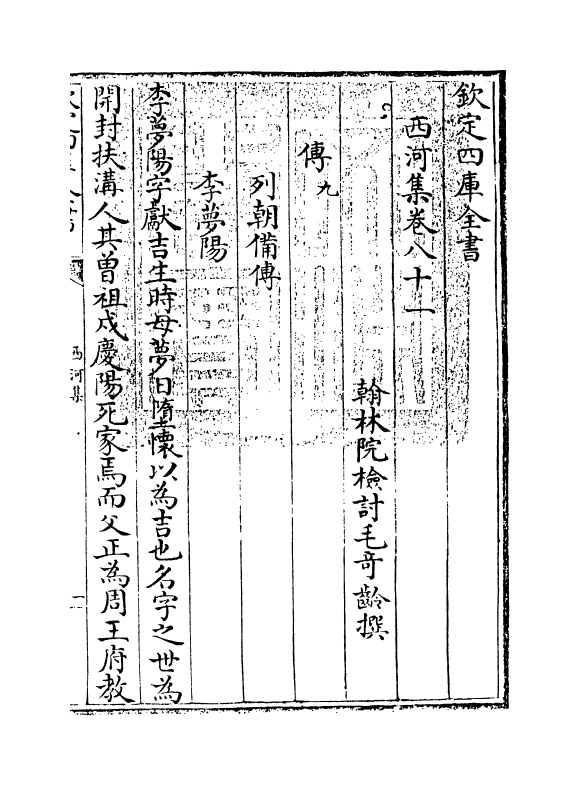 欽定四庫全書
西河集卷八十一
翰林院檢討毛奇齡撰
傳九
列朝備傳
李夢陽
李夢陽字獻吉生時母夢日墮懷以為吉也名字之世為
開封扶溝人其曾祖戍慶陽死家焉而父正為周王府教
西河集